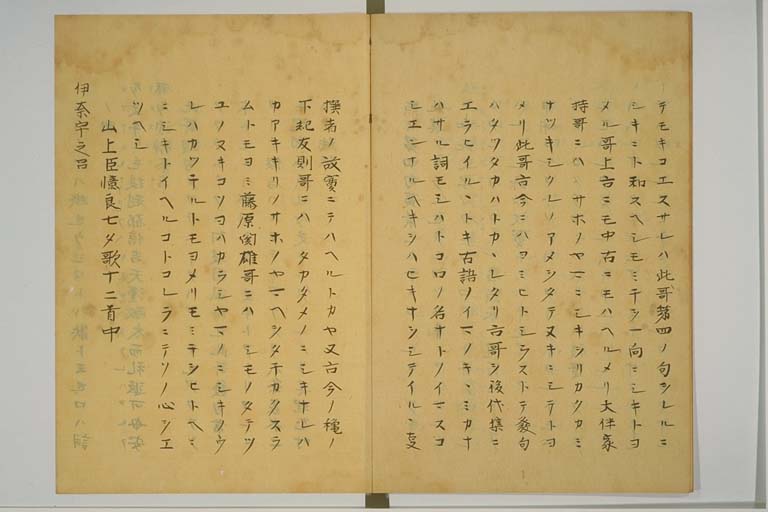 テモキコエスサレハ此哥第四ノ句シレルニ
シキニト和スヘシモミテシ一向ニシキトヨ
メル哥上古ニモ中古ニモハヘルメリ大伴家
持哥ニハサホノヤマニシキシリカクカミ
サツキシクレノアメシタテヌキニシテトヨ
メリ此哥古今ニハヨミヒトシラストテ發句
ハタツタカハトカヽレタリ古哥シ後代集ニ
エラヒイルヽトキ古語ノイマノキヽミカナ
ハサル詞モシハトコロノ名サトノイマスコ
シエンナルヘキシハヒキナシミテイルヽ㕝
撰者ノ故實ニテハヘルトカヤ又古今ノ穐ノ
下紀友則哥ニハタカタメノニシキナレハ
カアキキリノサホノヤマヘシタチカクスラ
ムトモヨミ藤原関雄哥ニハシモノタテツ
ユノヌキコソヨハカラシヤマノニシキノヲ
レハカツチルトモヨメリモミテシヒトヘニ
ニシキトイヘルコトコレラニテソノ心シエ
ツヘシ
山上臣憶良七夕歌十二首中
伊奈宇之呂